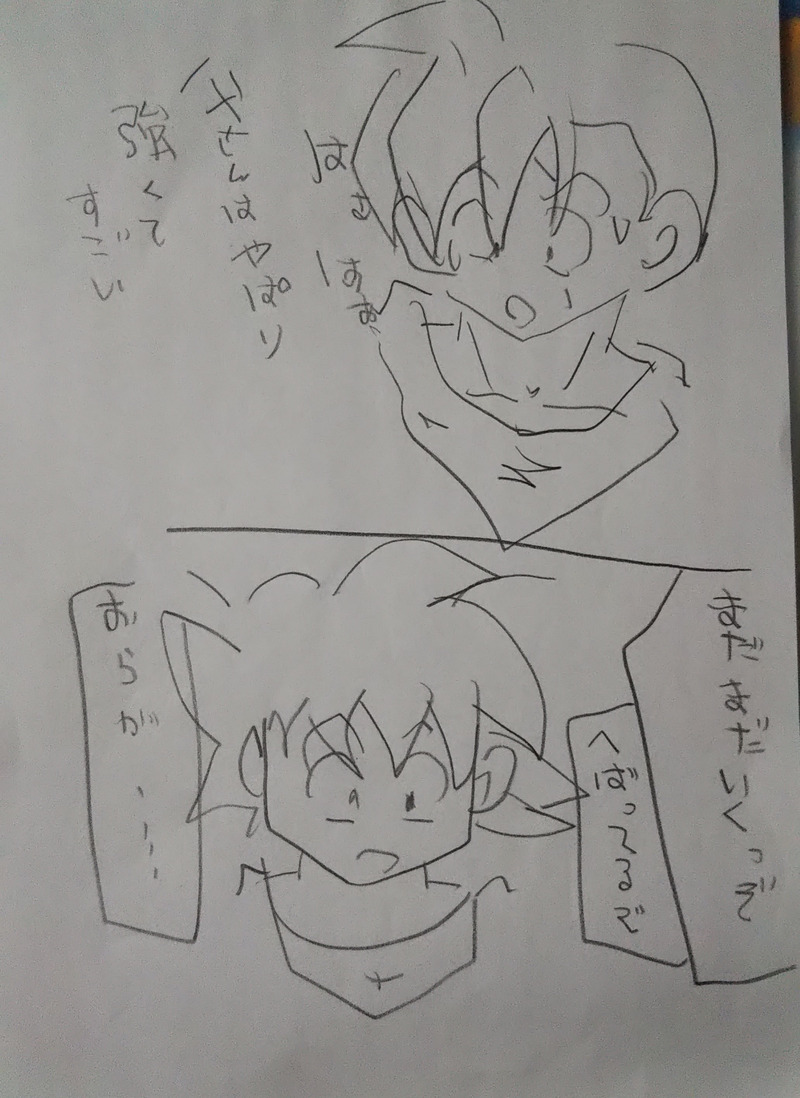 はぁ はぁ
父さんは やぱり
強くて
すごい
まだまだいくっぞ
へばってるぞ
おらが、、、